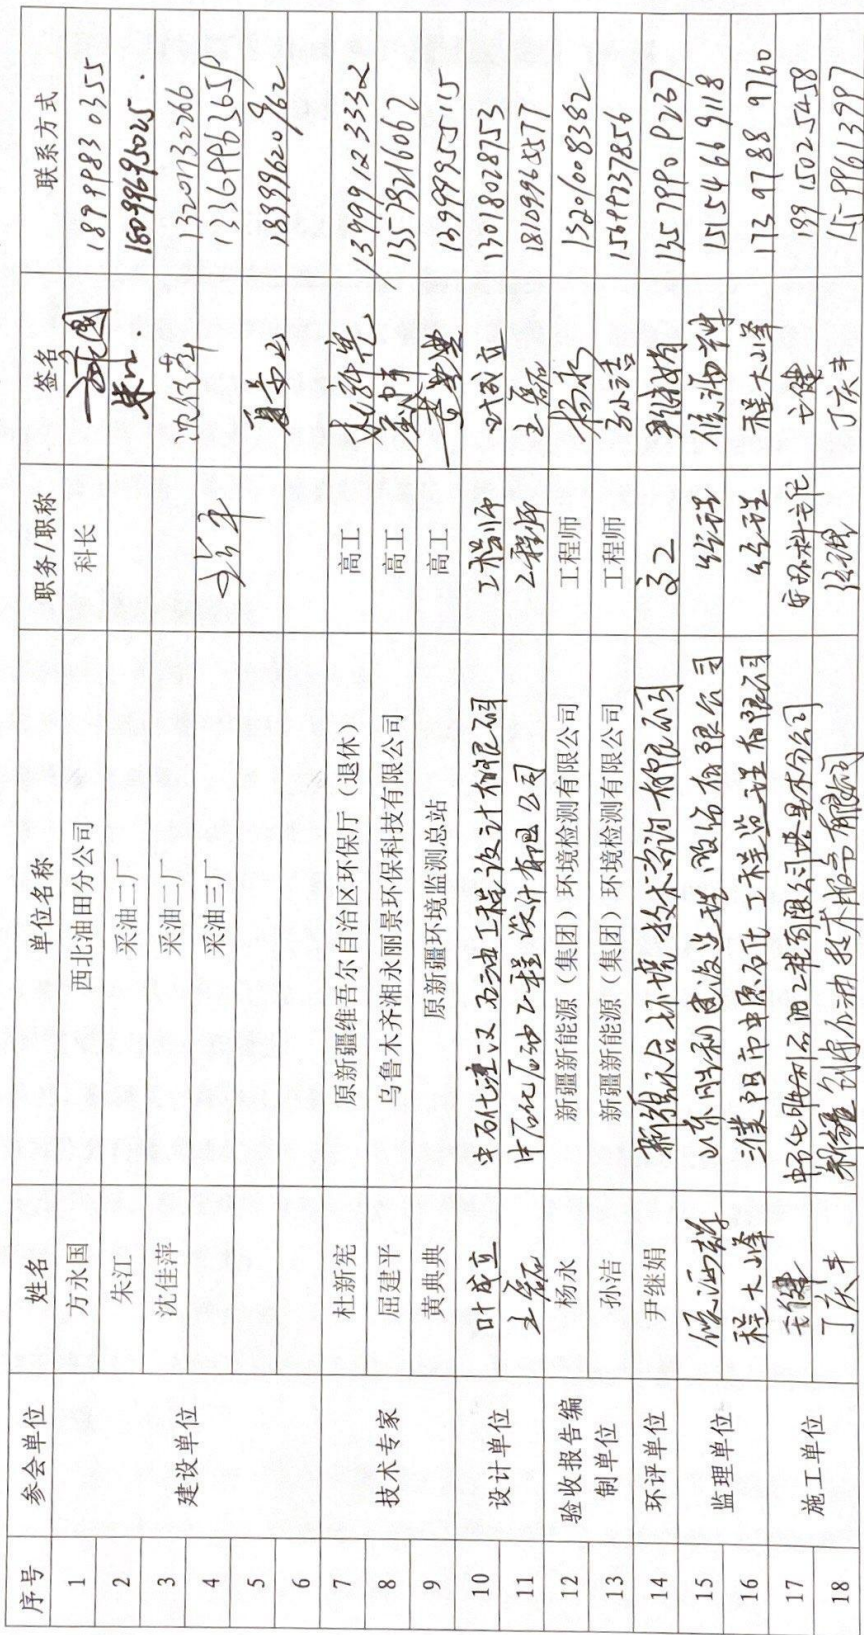 序号 参会单位 姓名 单位名称 职务/职称 签名 联系方式
1 建设单位 方永国 西北油田分公司 科长 18999830355
2 朱江 采油二厂 朱江 18099695025.
3 沈佳萍 采油二厂 沈佳萍 13201732266
4 采油三厂 13369963659
5 18399620962
6
7 技术专家 杜新宪 原新疆维吾尔自治区环保厅（退休） 高工 杜新宪 13999123332
8 屈建平 乌鲁木齐湘永丽景环保科技有限公司 高工 13579216062
9 黄典典 原新疆环境监测总站 高工 黄典典 13999955115
10 设计单位 叶成立 中石化江汉石油工程设计有限公司 工程师 叶成立 13018028753
11 王磊 中石化石油工程设计有限公司 工程师 王磊 18109965577
12 验收报告编制单位 杨永 新疆新能源（集团）环境检测有限公司 工程师 杨永 13201008382
13 孙洁 新疆新能源（集团）环境检测有限公司 工程师 孙洁 15699237856
14 环评单位 尹继娟 新疆天合环境技术咨询有限公司 高工 尹继娟 13579909237
15 监理单位 山东胜利建设监理股份有限公司 经理 15154669118
16 程大峰 濮阳市中原石化工程监理有限公司 经理 程大峰 17397889760
17 施工单位 19915025458
18 丁庆丰 经理 丁庆丰 15996613997